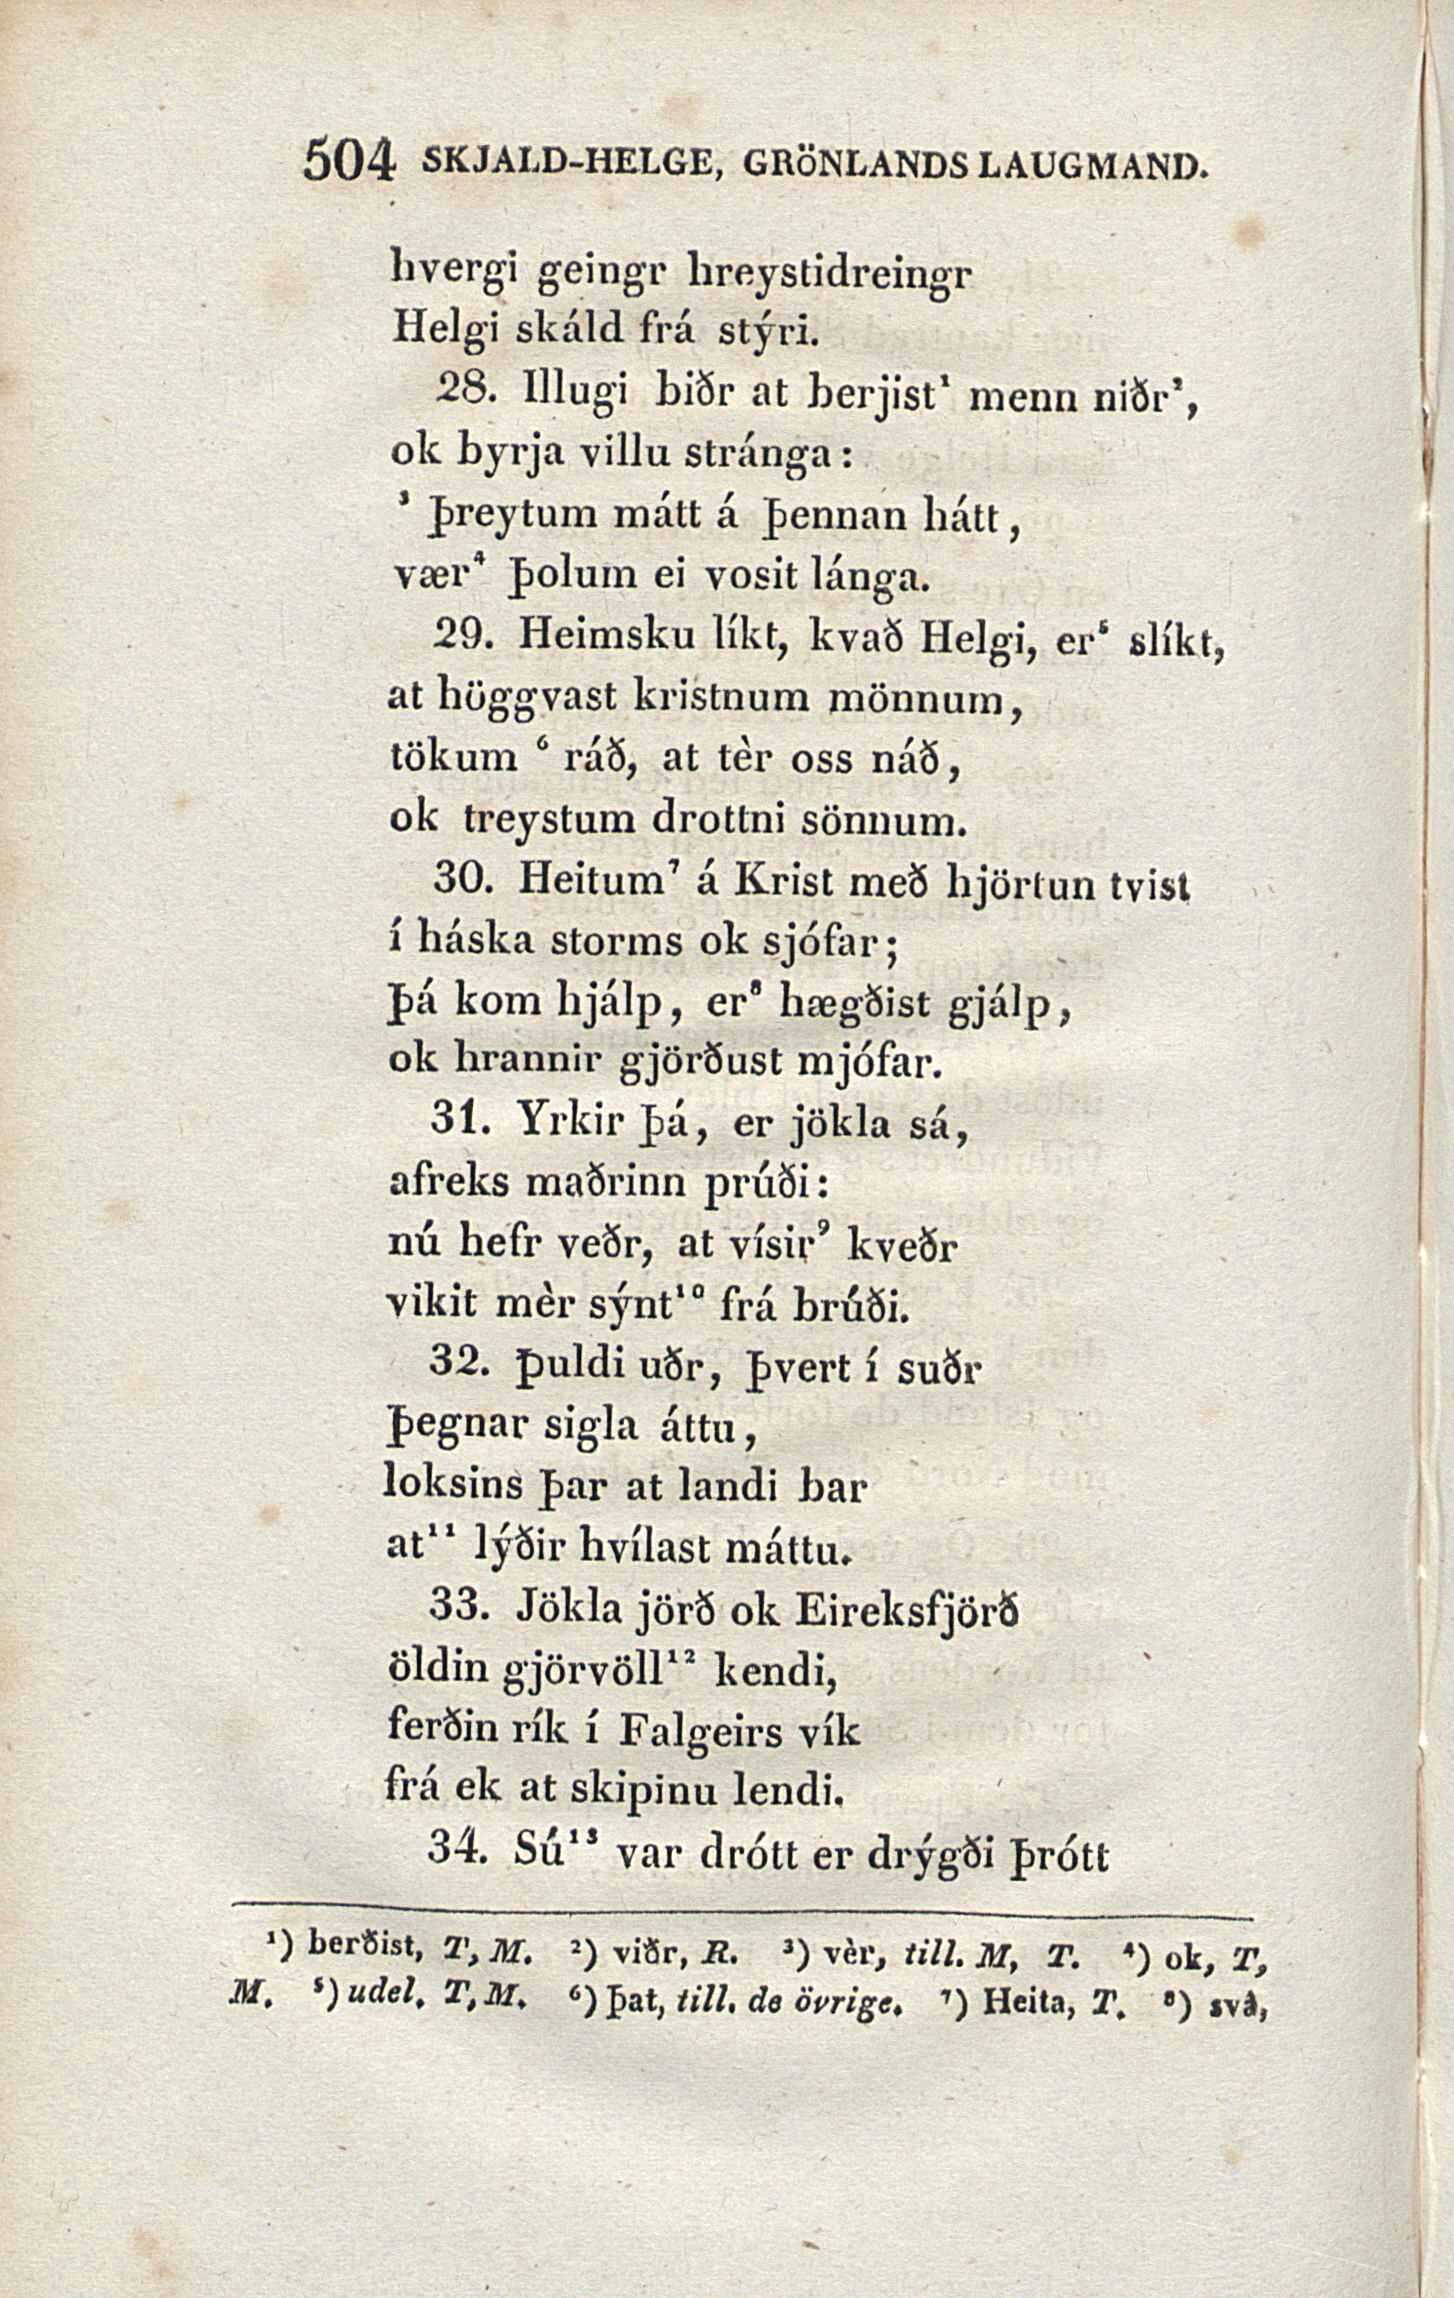 504 SKJALD-HELGE, GRÖNLANDS LAUGMAND.
hvergi geingr hreystidreingr
Helgi skáld frá stýri.
28. Illugi biðr at berjist¹ menn niðr²,
ok byrja villu stránga:
³ Þreytum mátt á þennan hátt,
vær⁴ þolum ei vosit lánga.
29. Heimsku líkt, kvað Helgi, er⁵ slíkt,
at höggvast kristnum mönnum,
tökum ⁶ ráð, at tèr oss náð,
ok treystum drottni sönnum.
30. Heitum⁷ á Krist með hjörtun tvist
í háska storms ok sjófar;
Þá kom hjálp, er⁸ hægðist gjálp,
ok hrannir gjörðust mjófar.
31. Yrkir þá, er jökla sá,
afreks maðrinn prúði:
nú hefr veðr, at vísir⁹ kveðr
vikit mèr sýnt¹⁰ frá brúði.
32. Þuldi uðr, þvert í suðr
Þegnar sigla áttu,
loksins þar at landi bar
at¹¹ lýðir hvílast máttu.
33. Jökla jörð ok Eireksfjörð
öldin gjörvöll¹² kendi,
ferðin rík í Falgeirs vík
frá ek at skipinu lendi.
34. Sú¹³ var drótt er drýgði þrótt
¹) berðist, T, M. ²) viðr, R. ³) vèr, till. M, T. ⁴) ok, T,
M. ⁵) udel. T, M. ⁶) þat, till. de övrige. ⁷) Heita, T. ⁸) svâ,